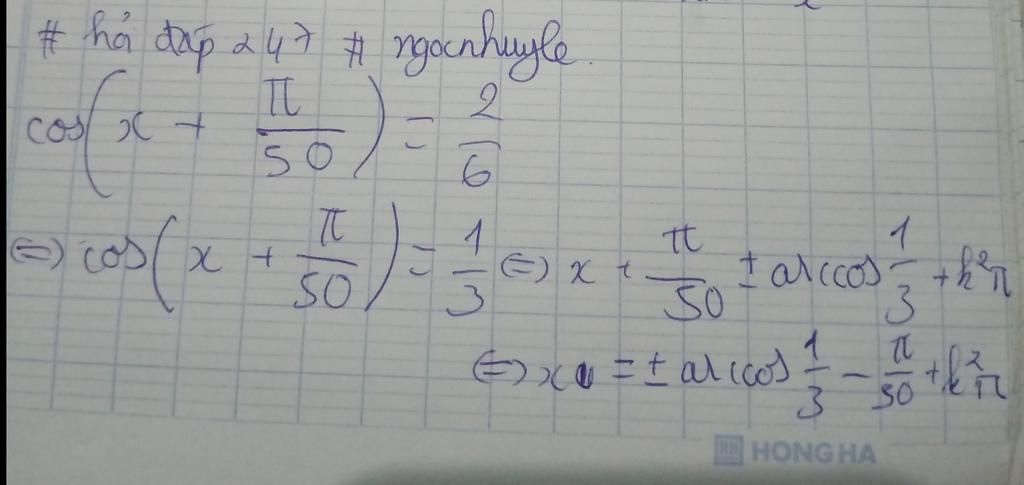 # hỏi đáp 247 # ngocnhuyle.
cos(x + π/50) = 2/6
⇔ cos(x + π/50) = 1/3 ⇔ x + π/50 ± arccos 1/3 + k2π
⇔ x = ± arccos 1/3 − π/50 + k2π
HONG HA